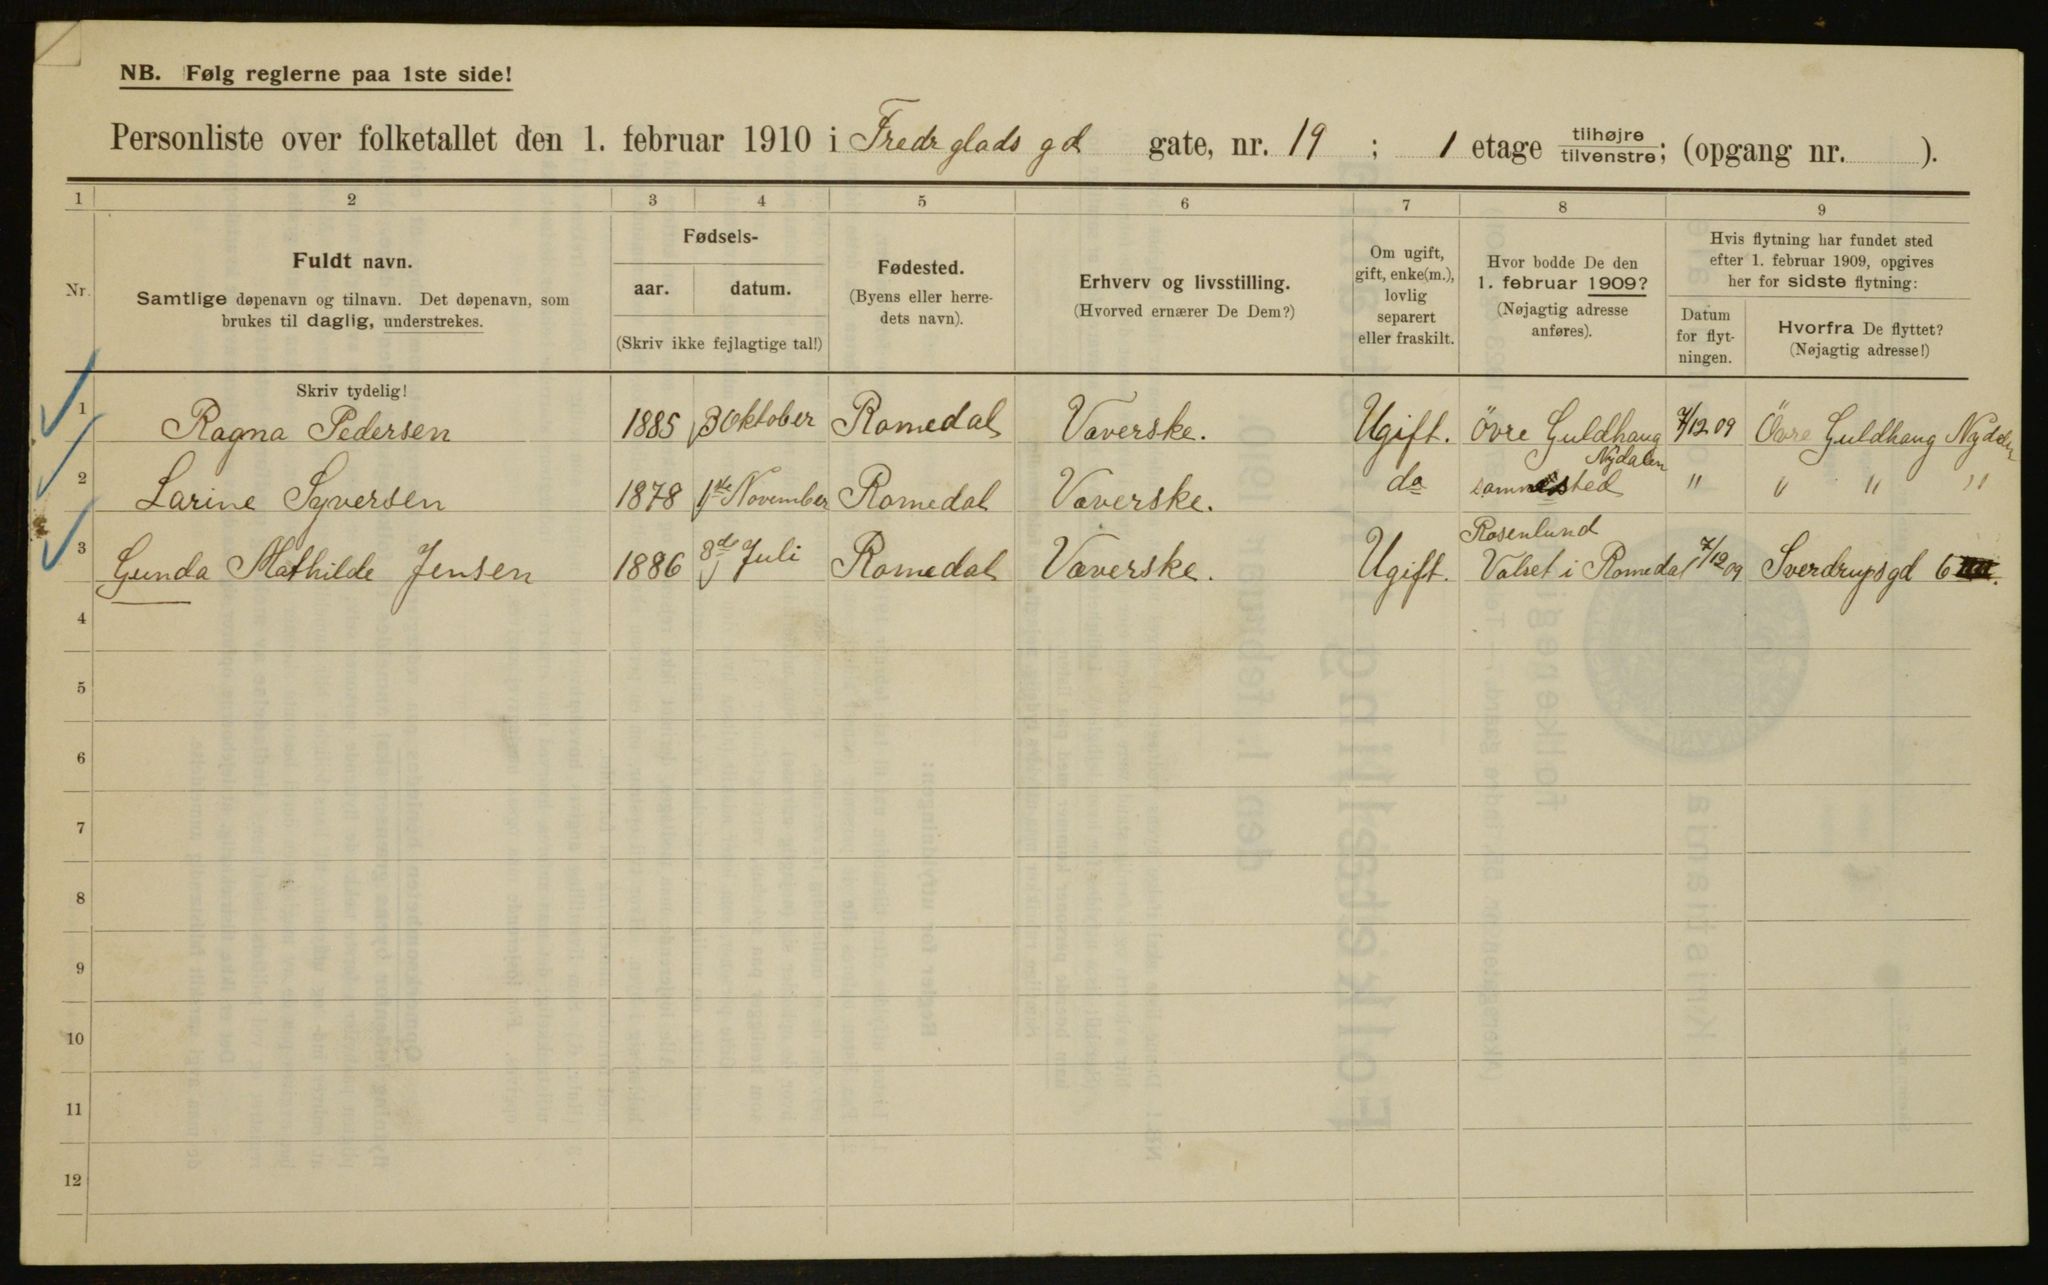 NB. Følg reglerne paa 1ste side!
Personliste over folketallet den 1. februar 1910 i Fredr glads gd gate, nr. 19 ; 1 etage tilhøjre/tilvenstre; (opgang nr. ).
1 2 3 4 5 6 7 8 9
Nr.
Fuldt navn.
Samtlige døpenavn og tilnavn. Det døpenavn, som
brukes til daglig, understrekes.
Skriv tydelig!
Fødsels-
aar. datum.
(Skriv ikke fejlagtige tal!)
Fødested.
(Byens eller herre-
dets navn).
Erhverv og livsstilling.
(Hvorved ernærer De Dem?)
Om ugift,
gift, enke(m.),
lovlig
separert
eller fraskilt.
Hvor bodde De den
1. februar 1909?
(Nøjagtig adresse
anføres).
Hvis flytning har fundet sted
efter 1. februar 1909, opgives
her for sidste flytning:
Datum
for flyt-
ningen.
Hvorfra De flyttet?
(Nøjagtig adresse!)
1 Ragna Pedersen 1885 3 Oktober Romedal Væverske. Ugift. Övre Guldhaug Nydalen 7/12 09 Övre Guldhaug Nydalen
2 Larine Syversen 1878 1ste November Romedal Væverske. do sammested " " " "
3 Gunda Mathilde Jensen 1886 8de Juli Romedal Væverske. Ugift. Rosenlund Valset i Romedal 7/12 09 Sverdrupsgd 6
4
5
6
7
8
9
10
11
12